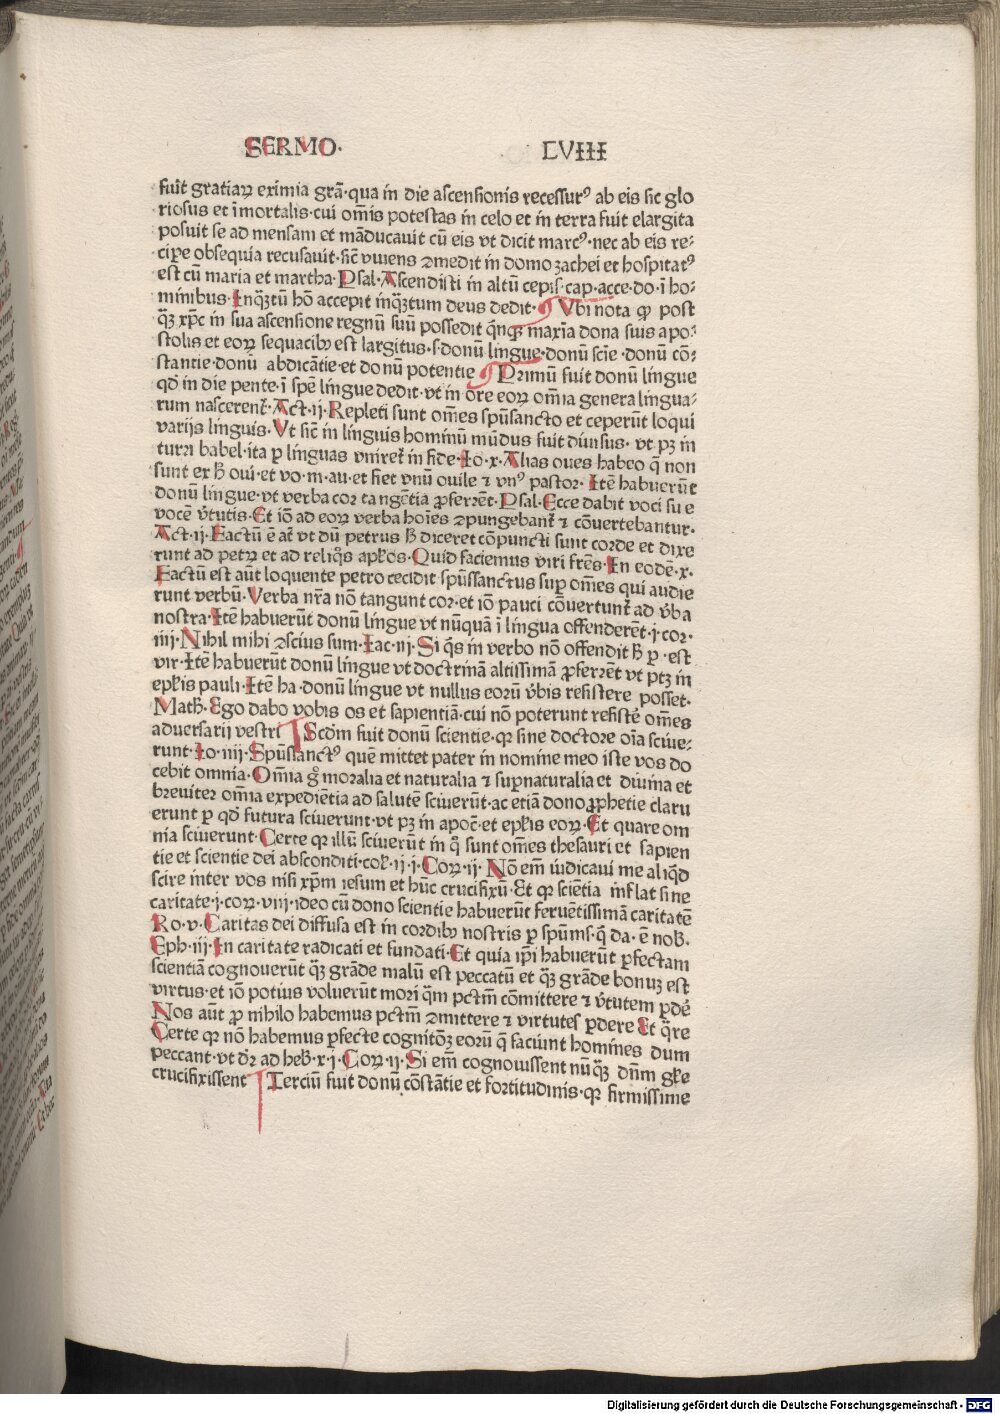 SERMO. LVIII
fuit gratiaꝝ eximia grā·qua in die ascensionis recessurꝰ ab eis sic glo
riosus et īmortalis·cui om̄is potestas in celo et in terra fuit elargita
posuit se ad mensam et māducauit cū eis vt dicit marcꝰ·nec ab eis re⸗
cipe obsequia recusauit·sic̄ viuens ꝯmedit in domo zachei et hospitatꝰ
est cū maria et martha·Psal·Ascendisti in altū cepis·cap·acce·do·ī ho⸗
minibus·Inqꝫtū hō accepit inqꝫtum deus dedit·Ubi nota ꝙ post
qꝫ xp̄c in sua ascensione regnū suū possedit q̄nqꝫ maxīa dona suis apo⸗
stolis et eoꝝ sequacibꝫ est largitus·s·donū lingue·donū scie·donū cō⸗
stantie·donū abdicātie·et donū potentie Primū fuit donū lingue
qd̄ in die pente·ī spē lingue dedit·vt in ore eoꝝ om̄ia genera lingua⸗
rum nascerent̄·Act·ij·Repleti sunt om̄es spūsancto et ceperūt loqui
varijs linguis·Vt sic̄ in linguis hominū mūdus fuit diuisus·vt pꝫ in
turri babel·ita ꝑ linguas vniret̄ in fide·Io·x·Alias oues habeo q̄ non
sunt ex h̄ oui·et vo·m·au·et fiet vnū ouile ⁊ vnꝰ pastor·Itē habuerūt
donū lingue·vt verba cor tangētia ꝓferrēt·Psal·Ecce dabit voci sue
vocē v̄tutis·Et iō ad eoꝝ verba hoīes ꝯpungebant̄ ⁊ cōuertebantur·
Act·ij·Factū ē at̄ vt dū petrus h̄ diceret cōpuncti sunt corde et dixe
runt ad petrū et ad reliq̄s apl̄os·Quid faciemus viri fr̄es·In eodē·x·
Factū est aūt loquente petro cecidit spūssanctus suꝑ om̄es qui audie
runt verbū·Verba nr̄a nō tangunt cor·et iō pauci cōuertunt̄ ad v̄ba
nostra·Itē habuerūt donū lingue vt nūquā ī lingua offenderēt·j·cor·
iiij·Nihil mihi ꝯscius sum·Iac·iij·Si q̄s in verbo nō offendit h̄ ꝑ·est
vir·Itē habuerūt donū lingue vt doctrinā altissimā ꝓferrēt vt ptꝫ in
epl̄is pauli·Itē ha·donū lingue vt nullus eorū v̄bis resistere posset·
Math̄·Ego dabo vobis os et sapientiā·cui nō poterunt resistē om̄es
aduersarij vestri Scd̄m fuit donū scientie·qꝛ sine doctore oīa sciue⸗
runt·Io·iiij·Spūssanctꝰ quē mittet pater in nomine meo iste vos do
cebit omnia·Om̄ia gͦ moralia et naturalia ⁊ suꝑnaturalia et diuina et
breuiter om̄ia expediētia ad salutē sciuerūt·ac etiā dono ꝓphetie claru
erunt ꝑ qd̄ futura sciuerunt·vt pꝫ in apoc̄·et epl̄is eoꝝ·Et quare om
nia sciuerunt·Certe qꝛ illū sciuerūt in q̄ sunt om̄es thesauri et sapien
tie et scientie dei absconditi·col̄·ij·j·Coꝝ·ij·Nō em̄ iudicaui me aliqd̄
scire inter vos nisi xp̄m iesum et hūc crucifixū·Et qꝛ sciētia inflat sine
caritate·j·coꝝ·viij·ideo cū dono scientie habuerūt feruētissimā caritatē
Ro·v·Caritas dei diffusa est in cordibꝫ nostris ꝑ spūms·q̄ da·ē nob̄·
Eph·iij·In caritate radicati et fundati·Et quia ip̄i habuerūt ꝑfectam
scientiā cognouerūt qꝫ grāde malū est peccatū et qꝫ grāde bonuꝫ est
virtus·et iō potius voluerūt mori qꝫm pctm̄ cōmittere ⁊ v̄tutem ꝑdē
Nos aūt ꝓ nihilo habemus pctm̄ ꝯmittere ⁊ virtutes ꝑdere Et q̄re
Certe qꝛ nō habemus ꝑfecte cognitōꝫ eorū q̄ faciunt homines dum
peccant·vt dr̄ ad heb̄·x·j·Coꝝ·ij·Si em̄ cognouissent nūqꝫ dn̄m gl̄e
crucifixissent Terciū fuit donū cōstātie et fortitudinis·qꝛ firmissime
Digitalisierung gefördert durch die Deutsche Forschungsgemeinschaft - DFG